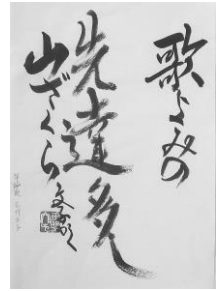 歌よみの
先達多し
山ざくら